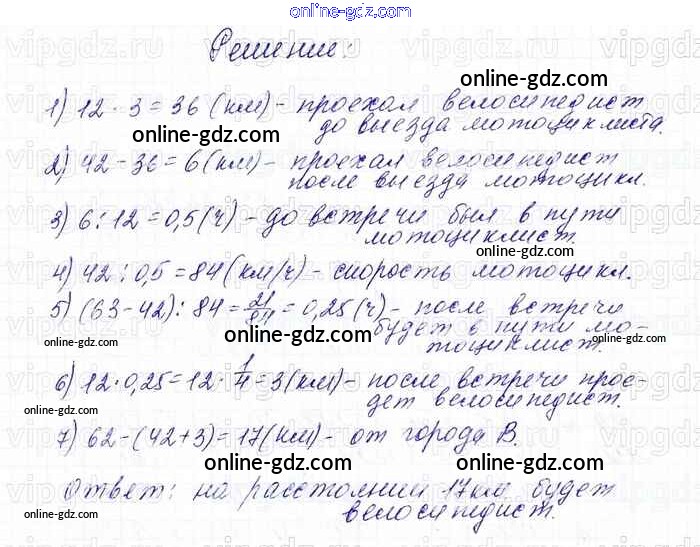 online-gdz.com
Решение:
1) 12 · 3 = 36 (км) - проехал велосипедист
до выезда мотоциклиста.
2) 42 - 36 = 6 (км) - проехал велосипедист
после выезда мотоцикл.
3) 6 : 12 = 0,5 (ч) - до встречи был в пути
мотоциклист.
4) 42 : 0,5 = 84 (км/ч) - скорость мотоцикл.
5) (63 - 42) : 84 = 21/84 = 0,25 (ч) - после встречи
будет в пути мо-
тоциклист.
6) 12 · 0,25 = 12 · 1/4 = 3 (км) - после встречи прое-
дет велосипедист.
7) 62 - (42 + 3) = 17 (км) - от города В.
Ответ: на расстоянии 17 км будет
велосипедист.
vipgdz.ru
online-gdz.com
online-gdz.com
online-gdz.com
online-gdz.com
online-gdz.com
online-gdz.com
online-gdz.com
online-gdz.com
online-gdz.com
online-gdz.com
online-gdz.com
online-gdz.com